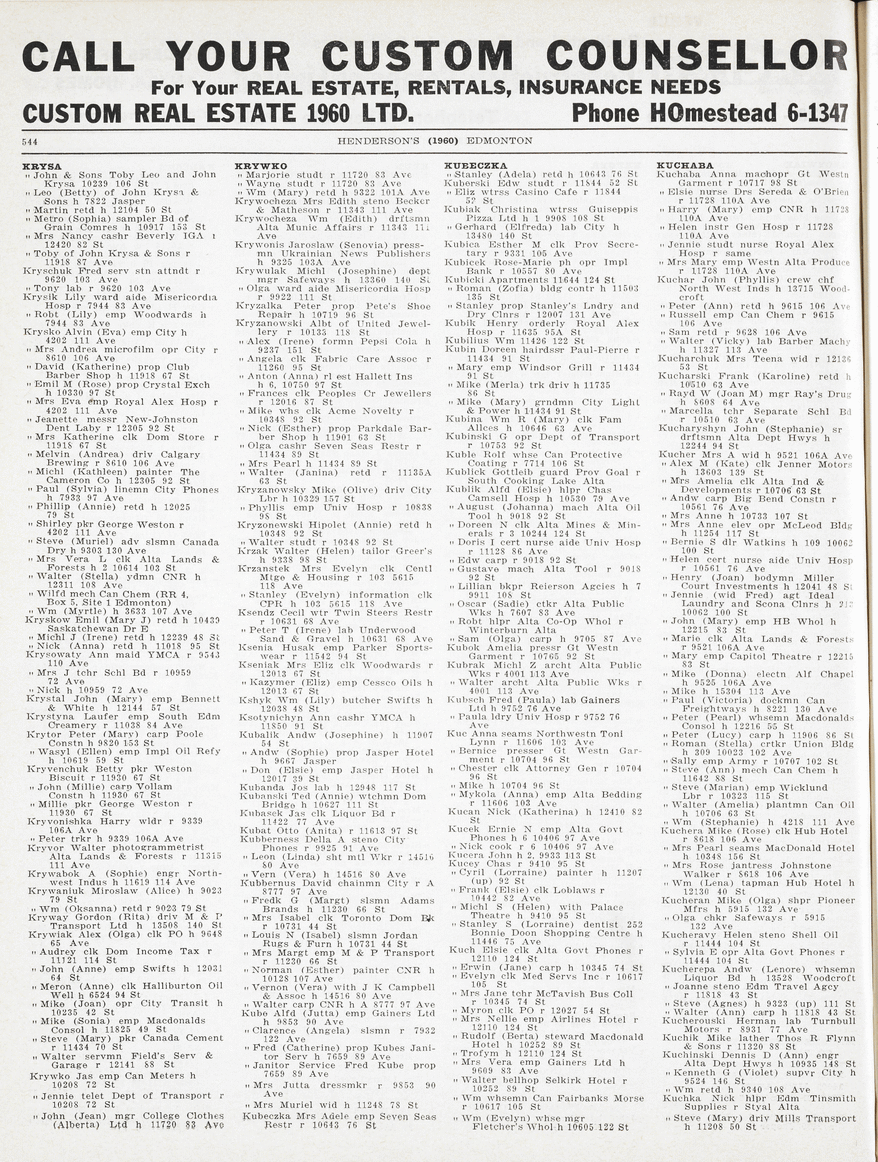 CALL YOUR CUSTOM COUNSELLOR
For Your REAL ESTATE, RENTALS, INSURANCE NEEDS
CUSTOM REAL ESTATE 1960 LTD. Phone HOmestead 6-1347
544 HENDERSON'S (1960) EDMONTON
KRYSA
" John & Sons Toby Leo and John
Krysa 10239 106 St
" Leo (Betty) of John Krysa &
Sons h 7822 Jasper
" Martin retd h 12104 50 St
" Metro (Sophia) sampler Bd of
Grain Comres h 10917 153 St
" Mrs Nancy cashr Beverly IGA r
12420 82 St
" Toby of John Krysa & Sons r
11918 87 Ave
Kryschuk Fred serv stn attndt r
9620 103 Ave
" Tony lab r 9620 103 Ave
Krysik Lily ward aide Misericordia
Hosp r 7944 83 Ave
" Robt (Lily) emp Woodwards h
7944 83 Ave
Krysko Alvin (Eva) emp City h
4202 111 Ave
" Mrs Andrea microfilm opr City r
8610 106 Ave
" David (Katherine) prop Club
Barber Shop h 11918 67 St
" Emil M (Rose) prop Crystal Exch
h 10330 97 St
" Mrs Eva emp Royal Alex Hosp r
4202 111 Ave
" Jeanette messr New-Johnston
Dent Laby r 12305 92 St
" Mrs Katherine clk Dom Store r
11918 67 St
" Melvin (Andrea) driv Calgary
Brewing r 8610 106 Ave
" Michl (Kathleen) painter The
Cameron Co h 12305 92 St
" Paul (Sylvia) linemn City Phones
h 7933 97 Ave
" Phillip (Annie) retd h 12025
79 St
" Shirley pkr George Weston r
4202 111 Ave
" Steve (Muriel) adv slsmn Canada
Dry h 9303 130 Ave
" Mrs Vera L clk Alta Lands &
Forests h 2 10614 103 St
" Walter (Stella) ydmn CNR h
12311 108 Ave
" Wilfd mech Can Chem (RR 4,
Box 5, Site 1 Edmonton)
" Wm (Myrtle) h 3633 107 Ave
Kryskow Emil (Mary J) retd h 10439
Saskatchewan Dr E
" Michl J (Irene) retd h 12239 48 St
" Nick (Anna) retd h 11018 95 St
Krysowaty Ann maid YMCA r 9543
110 Ave
" Mrs J tchr Schl Bd r 10959
72 Ave
" Nick h 10959 72 Ave
Krystal John (Mary) emp Bennett
& White h 12144 57 St
Krystyna Laufer emp South Edm
Creamery r 11038 84 Ave
Krytor Peter (Mary) carp Poole
Constn h 9820 153 St
" Wasyl (Ellen) emp Impl Oil Refy
h 10619 59 St
Kryvenchuk Betty pkr Weston
Biscuit r 11930 67 St
" John (Millie) carp Vollam
Constn h 11930 67 St
" Millie pkr George Weston r
11930 67 St
Kryvonishka Harry wldr r 9339
106A Ave
" Peter trkr h 9339 106A Ave
Kryvor Walter photogrammetrist
Alta Lands & Forests r 11315
111 Ave
Krywabok A (Sophie) engr North-
west Indus h 11619 114 Ave
Krywanluk Miroslaw (Alice) h 9023
79 St
" Wm (Oksanna) retd r 9023 79 St
Kryway Gordon (Rita) driv M & P
Transport Ltd h 13508 140 St
Krywiak Alex (Olga) clk PO h 9648
65 Ave
" Audrey clk Dom Income Tax r
11121 114 St
" John (Anne) emp Swifts h 12031
64 St
" Meron (Anne) clk Halliburton Oil
Well h 6524 94 St
" Mike (Joan) opr City Transit h
10235 42 St
" Mike (Sonia) emp Macdonalds
Consol h 11825 49 St
" Steve (Mary) pkr Canada Cement
r 11434 70 St
" Walter servmn Field's Serv &
Garage r 12141 88 St
Krywko Jas emp Can Meters h
10208 72 St
" Jennie telet Dept of Transport r
10208 72 St
" John (Jean) mgr College Clothes
(Alberta) Ltd h 11720 83 Ave
KRYWKO
" Marjorie studt r 11720 83 Ave
" Wayne studt r 11720 83 Ave
" Wm (Mary) retd h 9322 101A Ave
Krywocheza Mrs Edith steno Becker
& Matheson r 11343 111 Ave
Krywocheza Wm (Edith) drftsmn
Alta Munic Affairs r 11343
Ave
Krywonis Jaroslaw (Senovia) press-
mn Ukrainian News Publishers
h 9325 103A Ave
Krywulak Michl (Josephine) dept
mgr Safeways h 13360 140 St
" Olga ward aide Misericordia Hosp
r 9922 111 St
Kryzalka Peter prop Pete's Shoe
Repair h 10719 96 St
Kryzanowski Albt of United Jewel-
lery r 10133 118 St
" Alex (Irene) formn Pepsi Cola h
9237 151 St
" Angela clk Fabric Care Assoc r
11260 95 St
" Anton (Anna) rl est Hallett Ins
h 6, 10750 97 St
" Frances clk Peoples Cr Jewellers
r 12016 87 St
" Mike whs clk Acme Novelty r
10348 92 St
" Nick (Esther) prop Parkdale Bar-
ber Shop h 11901 63 St
" Olga cashr Seven Seas Restr r
11434 89 St
" Mrs Pearl h 11434 89 St
" Walter (Janina) retd r 11135A
63 St
Kryzanowsky Mike (Olive) driv City
Lbr h 10329 157 St
" Phyllis emp Univ Hosp r 10838
98 St
Kryzonewski Hipolet (Annie) retd h
10348 92 St
" Walter studt r 10348 92 St
Krzak Walter (Helen) tailor Greer's
h 9338 98 St
Krzanstek Mrs Evelyn clk Centl
Mtge & Housing r 103 5615
118 Ave
" Stanley (Evelyn) information clk
CPR h 103 5615 118 Ave
Ksendz Cecil wtr Twin Steers Restr
r 10631 68 Ave
" Peter T (Irene) lab Underwood
Sand & Gravel h 10631 68 Ave
Ksenia Husak emp Parker Sports-
wear r 11542 94 St
Kseniak Mrs Eliz clk Woodwards r
12013 67 St
" Kazymer (Eliz) emp Cessco Oils h
12013 67 St
Kshyk Wm (Lily) butcher Swifts h
12038 48 St
Ksotynichyn Ann cashr YMCA h
11850 91 St
Kubalik Andw (Josephine) h 11907
54 St
" Andw (Sophie) prop Jasper Hotel
h 9667 Jasper
" Don (Elsie) emp Jasper Hotel h
12017 39 St
Kubanda Jos lab h 12948 117 St
Kubanski Ted (Annie) wtchmn Dom
Bridge h 10627 111 St
Kubasek Jas clk Liquor Bd r
11422 77 Ave
Kubat Otto (Anita) r 11613 97 St
Kubberness Della A steno City
Phones r 9925 91 Ave
" Leon (Linda) sht mtl Wkr r 14516
80 Ave
" Vern (Vera) h 14516 80 Ave
Kubbernus David chainmn City r A
8777 97 Ave
" Fredk G (Margt) slsmn Adams
Brands h 11230 66 St
" Mrs Isabel clk Toronto Dom Bk
r 10731 44 St
" Louis N (Isabel) slsmn Jordan
Rugs & Furn h 10731 44 St
" Mrs Margt emp M & P Transport
r 11230 66 St
" Norman (Esther) painter CNR h
10128 107 Ave
" Vernon (Vera) with J K Campbell
& Assoc h 14516 80 Ave
" Walter carp CNR h A 8777 97 Ave
Kube Alfd (Jutta) emp Gainers Ltd
h 9853 90 Ave
" Clarence (Angela) slsmn r 7932
122 Ave
" Fred (Catherine) prop Kubes Jani-
tor Serv h 7659 89 Ave
" Janitor Service Fred Kube prop
7659 89 Ave
" Mrs Jutta dressmkr r 9853 90
Ave
" Mrs Muriel wid h 11248 78 St
Kubeczka Mrs Adele emp Seven Seas
Restr r 10643 76 St
KUBECZKA
" Stanley (Adela) retd h 10643 76 St
Kuberski Edw studt r 11844 52 St
" Eliz wtrss Casino Cafe r 11844
52 St
Kubiak Christina wtrss Guiseppis
Pizza Ltd h 1 9908 108 St
" Gerhard (Elfreda) lab City h
13480 140 St
Kubica Esther M clk Prov Secre-
tary r 9331 105 Ave
Kubicek Rose-Marie ph opr Impl
Bank r 10557 80 Ave
Kubicki Apartments 11644 124 St
" Roman (Zofia) bldg contr h 11503
135 St
" Stanley prop Stanley's Lndry and
Dry Clnrs r 12007 131 Ave
Kubik Henry orderly Royal Alex
Hosp r 11635 95A St
Kubilius Wm 11426 122 St
Kubin Doreen hairdssr Paul-Pierre r
11434 91 St
" Mary emp Windsor Grill r 11434
91 St
" Mike (Merla) trk driv h 11735
86 St
" Mike (Mary) grndmn City Light
& Power h 11434 91 St
Kubina Wm R (Mary) clk Fam
Allces h 10646 63 Ave
Kubinski G opr Dept of Transport
r 10753 92 St
Kuble Rolf whse Can Protective
Coating r 7714 106 St
Kublick Gottleib guard Prov Goal r
South Cooking Lake Alta
Kublik Alfd (Elsie) hlpr Chas
Camsell Hosp h 10530 79 Ave
" August (Johanna) mach Alta Oil
Tool h 9018 92 St
" Doreen N clk Alta Mines & Min-
erals r 3 10244 124 St
" Doris I cert nurse aide Univ Hosp
r 11128 86 Ave
" Edw carp r 9018 92 St
" Gustave mach Alta Tool r 9018
92 St
" Lillian bkpr Reierson Agcies h 7
9911 108 St
" Oscar (Sadie) ctkr Alta Public
Wks h 7607 83 Ave
" Robt hlpr Alta Co-Op Whol r
Winterburn Alta
" Sam (Olga) carp h 9705 87 Ave
Kubok Amelia pressr Gt Westn
Garment r 10765 92 St
Kubrak Michl Z archt Alta Public
Wks r 4001 113 Ave
" Walter archt Alta Public Wks r
4001 113 Ave
Kubsch Fred (Paula) lab Gainers
Ltd h 9752 76 Ave
" Paula ldry Univ Hosp r 9752 76
Ave
Kuc Anna seams Northwestn Toni
Lynn r 11606 103 Ave
" Bernice presser Gt Westn Gar-
ment r 10704 96 St
" Chester clk Attorney Gen r 10704
96 St
" Mike h 10704 96 St
" Mykola (Anna) emp Alta Bedding
r 11606 103 Ave
Kucan Nick (Katherina) h 12410 82
St
Kucek Ernie N emp Alta Govt
Phones h 6 10406 97 Ave
" Nick cook r 6 10406 97 Ave
Kucera John h 2, 9933 113 St
Kucey Chas r 9410 95 St
" Cyril (Lorraine) painter h 11207
(up) 92 St
" Frank (Elsie) clk Loblaws r
10442 82 Ave
" Michl S (Helen) with Palace
Theatre h 9410 95 St
" Stanley S (Lorraine) dentist 252
Bonnie Doon Shopping Centre h
11446 75 Ave
Kuch Elsie clk Alta Govt Phones r
12110 124 St
" Erwin (Jane) carp h 10345 74 St
" Evelyn clk Med Servs Inc r 10617
105 St
" Mrs Jane tchr McTavish Bus Coll
r 10345 74 St
" Myron clk PO r 12027 54 St
" Mrs Nellie emp Airlines Hotel r
12110 124 St
" Rudolf (Berta) steward Macdonald
Hotel h 10252 89 St
" Trofym h 12110 124 St
" Mrs Vera emp Gainers Ltd h
9609 83 Ave
" Walter bellhop Selkirk Hotel r
10252 89 St
" Wm whsemn Can Fairbanks Morse
r 10617 105 St
" Wm (Evelyn) whse mgr
Fletcher's Whol h 10605 122 St
KUCHABA
Kuchaba Anna machopr Gt Westn
Garment r 10717 98 St
" Elsie nurse Drs Sereda & O'Brien
r 11728 110A Ave
" Harry (Mary) emp CNR h 11728
110A Ave
" Helen instr Gen Hosp r 11728
110A Ave
" Jennie studt nurse Royal Alex
Hosp r same
" Mrs Mary emp Westn Alta Produce
r 11728 110A Ave
Kuchar John (Phyllis) crew chf
North West Inds h 13715 Wood-
croft
" Peter (Ann) retd h 9615 106 Ave
" Russell emp Can Chem r 9615
106 Ave
" Sam retd r 9628 106 Ave
" Walter (Vicky) lab Barber Machy
h 11327 113 Ave
Kucharchuk Mrs Teena wid r 12136
53 St
Kucharski Frank (Karoline) retd h
10510 63 Ave
" Rayd W (Joan M) mgr Ray's Drug
h 8608 64 Ave
" Marcella tchr Separate Schl Bd
r 10510 63 Ave
Kucharyshyn John (Stephanie) sr
drftsmn Alta Dept Hwys h
12244 94 St
Kucher Mrs A wid h 9521 106A Ave
" Alex M (Kate) clk Jenner Motors
h 13603 139 St
" Mrs Amelia clk Alta Ind &
Developments r 10706 63 St
" Andw carp Big Bend Constn r
10561 76 Ave
" Mrs Anne h 10733 107 St
" Mrs Anne elev opr McLeod Bldg
h 11254 125 St
" Bernie S dlr Watkins h 109 10062
100 St
" Helen cert nurse aide Univ Hosp
r 10561 76 Ave
" Henry (Joan) bodymn Miller
Court Investments h 12041 48 St
" Jennie (wid Fred) agt Ideal
Laundry and Scona Clnrs h
10062 100 St
" John (Mary) emp HB Whol h
12215 83 St
" Marie clk Alta Lands & Forests
r 9521 106A Ave
" Mary emp Capitol Theatre r 12215
83 St
" Mike (Donna) electn Alf Chapel
h 9525 106A Ave
" Mike h 15304 113 Ave
" Paul (Victoria) dockmn Can
Freightways h 8221 130 Ave
" Peter (Pearl) whsemn Macdonalds
Consol h 12216 55 St
" Peter (Lucy) carp h 11906 86 St
" Roman (Stella) crtkr Union Bldg
h 309 10023 102 Ave
" Sally emp Army r 10707 102 St
" Steve (Ann) mech Can Chem h
11642 88 St
" Steve (Marian) emp Wicklund
Lbr r 10323 115 St
" Walter (Amelia) plantmn Can Oil
h 10706 63 St
" Wm (Stephanie) h 4218 111 Ave
Kuchera Mike (Rose) clk Hub Hotel
r 8618 106 Ave
" Mrs Pearl seams MacDonald Hotel
h 10348 156 St
" Mrs Rose jantress Johnstone
Walker r 8618 106 Ave
" Wm (Lena) tapman Hub Hotel h
12130 40 St
Kucheran Mike (Olga) shpr Pioneer
Mfrs h 5915 132 Ave
" Olga chkr Safeways r 5915
132 Ave
Kucheravy Helen steno Shell Oil
r 11444 104 St
" Sylvia E opr Alta Govt Phones r
11444 104 St
Kucherepa Andw (Lenore) whsemn
Liquor Bd h 13528 Woodcroft
" Joanne steno Edm Travel Agcy
r 11818 43 St
" Steve (Agnes) h 9323 (up) 111 St
" Walter (Ann) carp h 11818 43 St
Kucherouski Herman lab Turnbull
Motors r 8931 77 Ave
Kuchik Mike lather Thos R Flynn
& Sons r 11320 88 St
Kuchinski Dennis D (Ann) engr
Alta Dept Hwys h 10935 148 St
" Kenneth G (Violet) supvr City h
9524 146 St
" Wm retd h 9340 108 Ave
Kuchka Nick hlpr Edm Tinsmith
Supplies r Styal Alta
" Steve (Mary) driv Mills Transport
h 11208 50 St